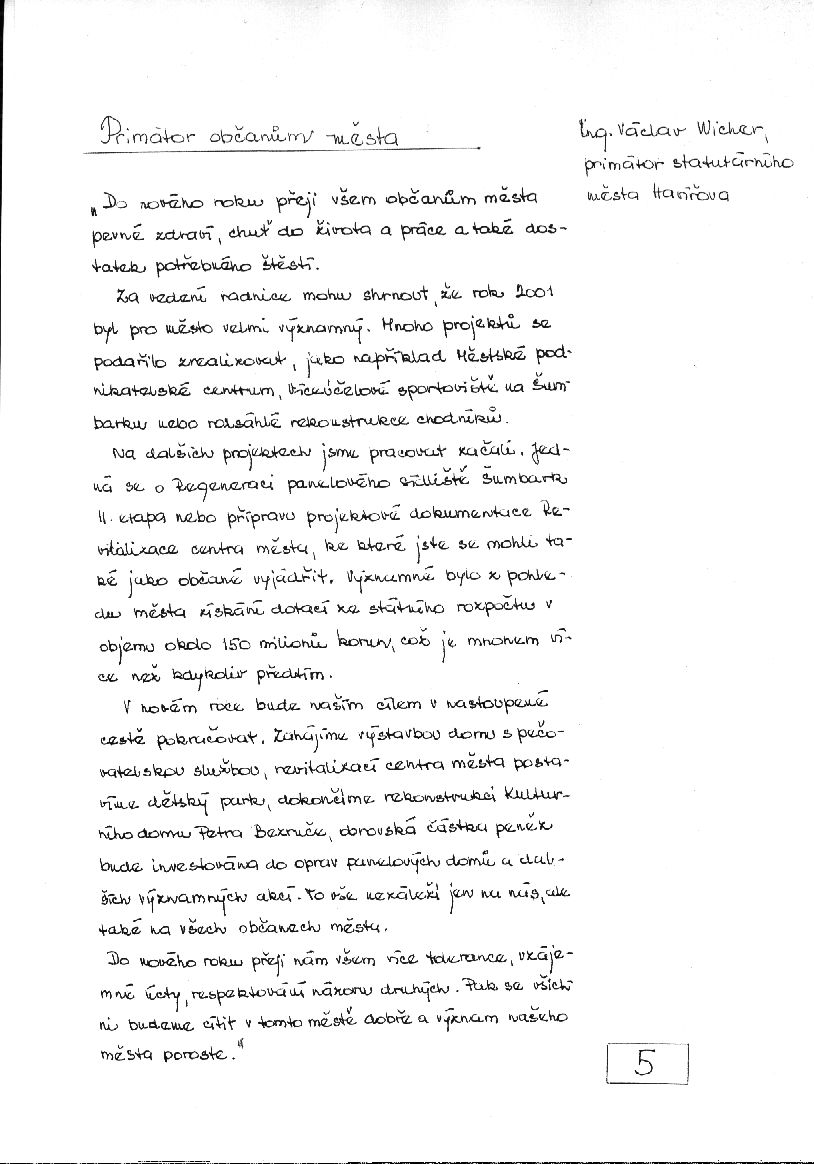 Primátor občanům města
Ing. Václav Wicher,
primátor statutárního
města Havířova
„Do nového roku přeji všem občanům města
pevné zdraví, chuť do života a práce a také dos-
tatek potřebného štěstí.
Za vedení radnice mohu shrnout, že rok 2001
byl pro město velmi významný. Mnoho projektů se
podařilo zrealizovat, jako například Městské pod-
nikatelské centrum, Víceúčelové sportoviště na Šum-
barku nebo rozsáhlé rekonstrukce chodníků.
Na dalších projektech jsme pracovat začali. Jed-
ná se o Regeneraci panelového sídliště Šumbark
II. etapa nebo přípravu projektové dokumentace Re-
vitalizace centra města, ke které jste se mohli ta-
ké jako občané vyjádřit. Významné bylo z pohle-
du města získání dotací ze státního rozpočtu v
objemu okolo 150 milionů korun, což je mnohem ví-
ce než kdykoliv předtím.
V novém roce bude naším cílem v nastoupené
cestě pokračovat. Zahájíme výstavbou domu s pečo-
vatelskou službou, revitalizací centra města posta-
víme dětský park, dokončíme rekonstrukci Kultur-
ního domu Petra Bezruče, obrovská částka peněz
bude investována do oprav panelových domů a dal-
ších významných akcí. To vše nezáleží jen na nás, ale
také na všech občanech města.
Do nového roku přeji nám všem více tolerance, vzáje-
mné úcty, respektování názoru druhých. Pak se všich
ni budeme cítit v tomto městě dobře a význam našeho
města poroste."
5